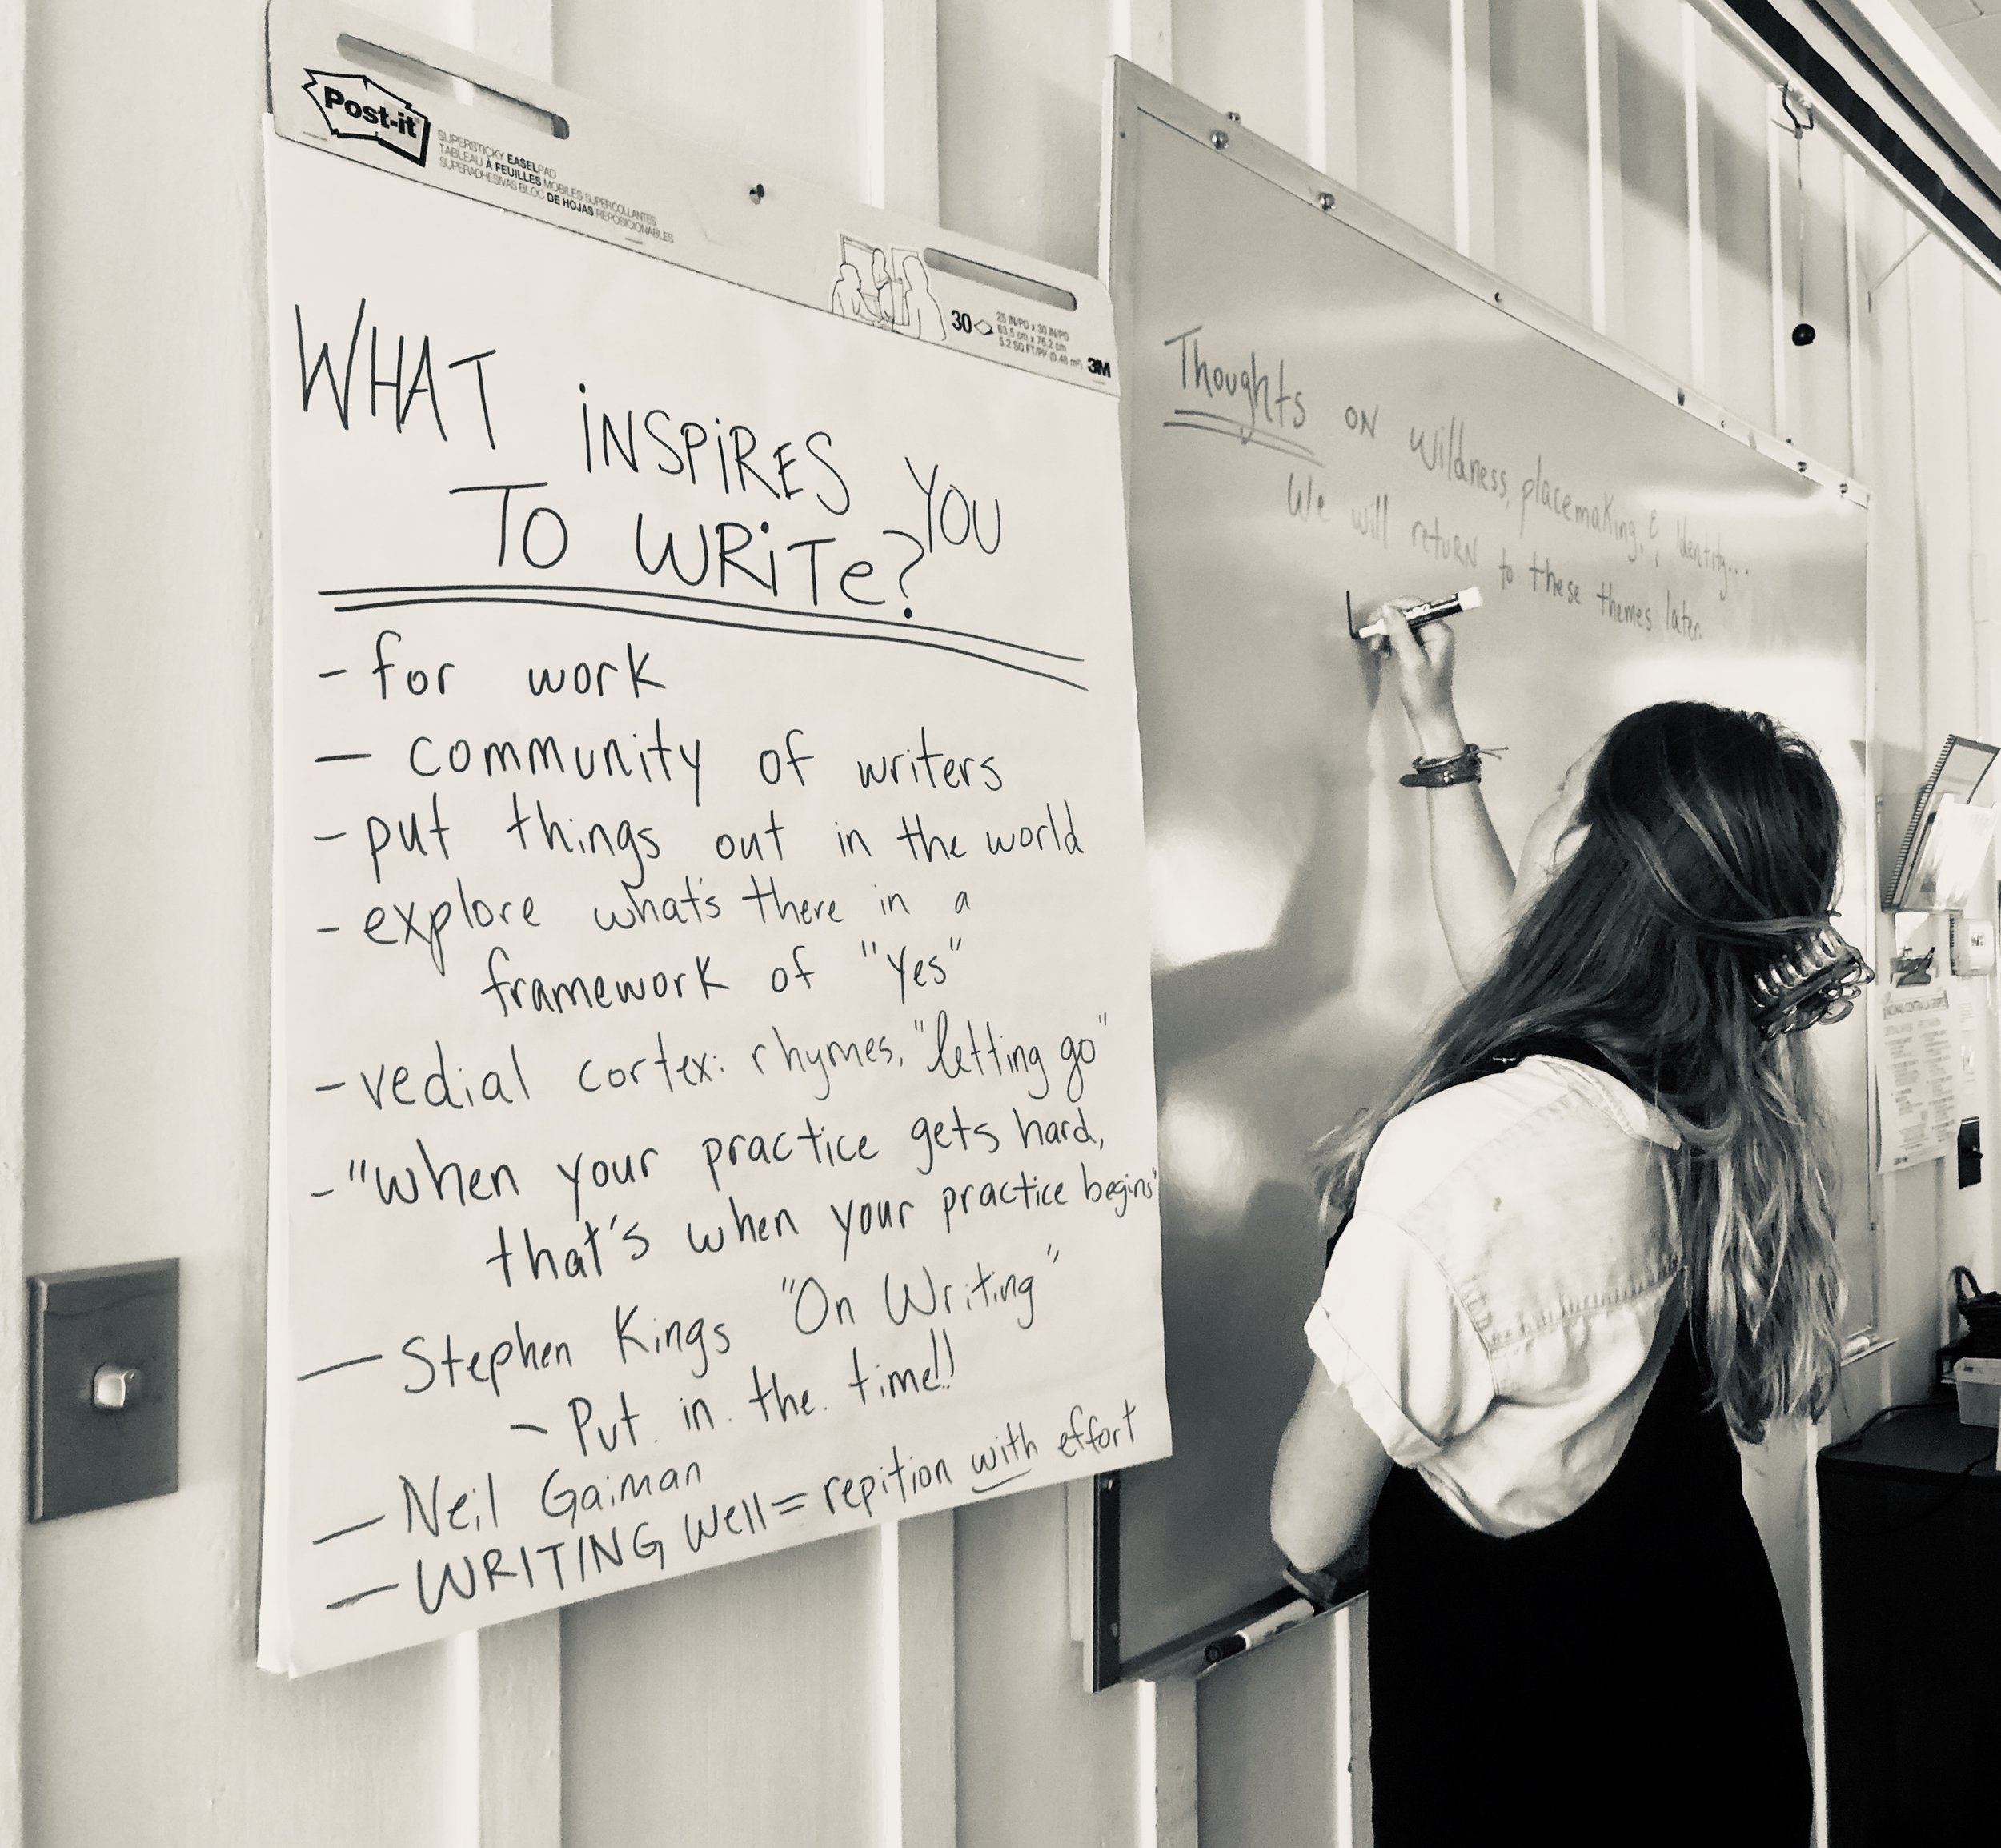 Post-it
SUPERSTICKY EASELPAD
TABLEAU À FEUILLES MOBILES SUPERCOLLANTES
SUPERADHESIVAS BLOC DE HOJAS REPOSICIONABLES
30
25 IN/PO x 30 IN/PO
63,5 cm x 76,2 cm
5.2 SQ FT/PI² (0.48 m²)
3M
WHAT iNSPiRES YOU
TO WRiTe?
- for work
- community of writers
- put things out in the world
- explore what's there in a
framework of "yes"
- vedial cortex: rhymes, "letting go"
- "when your practice gets hard,
that's when your practice begins"
- Stephen Kings "On Writing"
- Put in the time!!
- Neil Gaiman
- WRITING well = repition with effort
Thoughts on wildness, placemaking, & Identity...
We will return to these themes later.